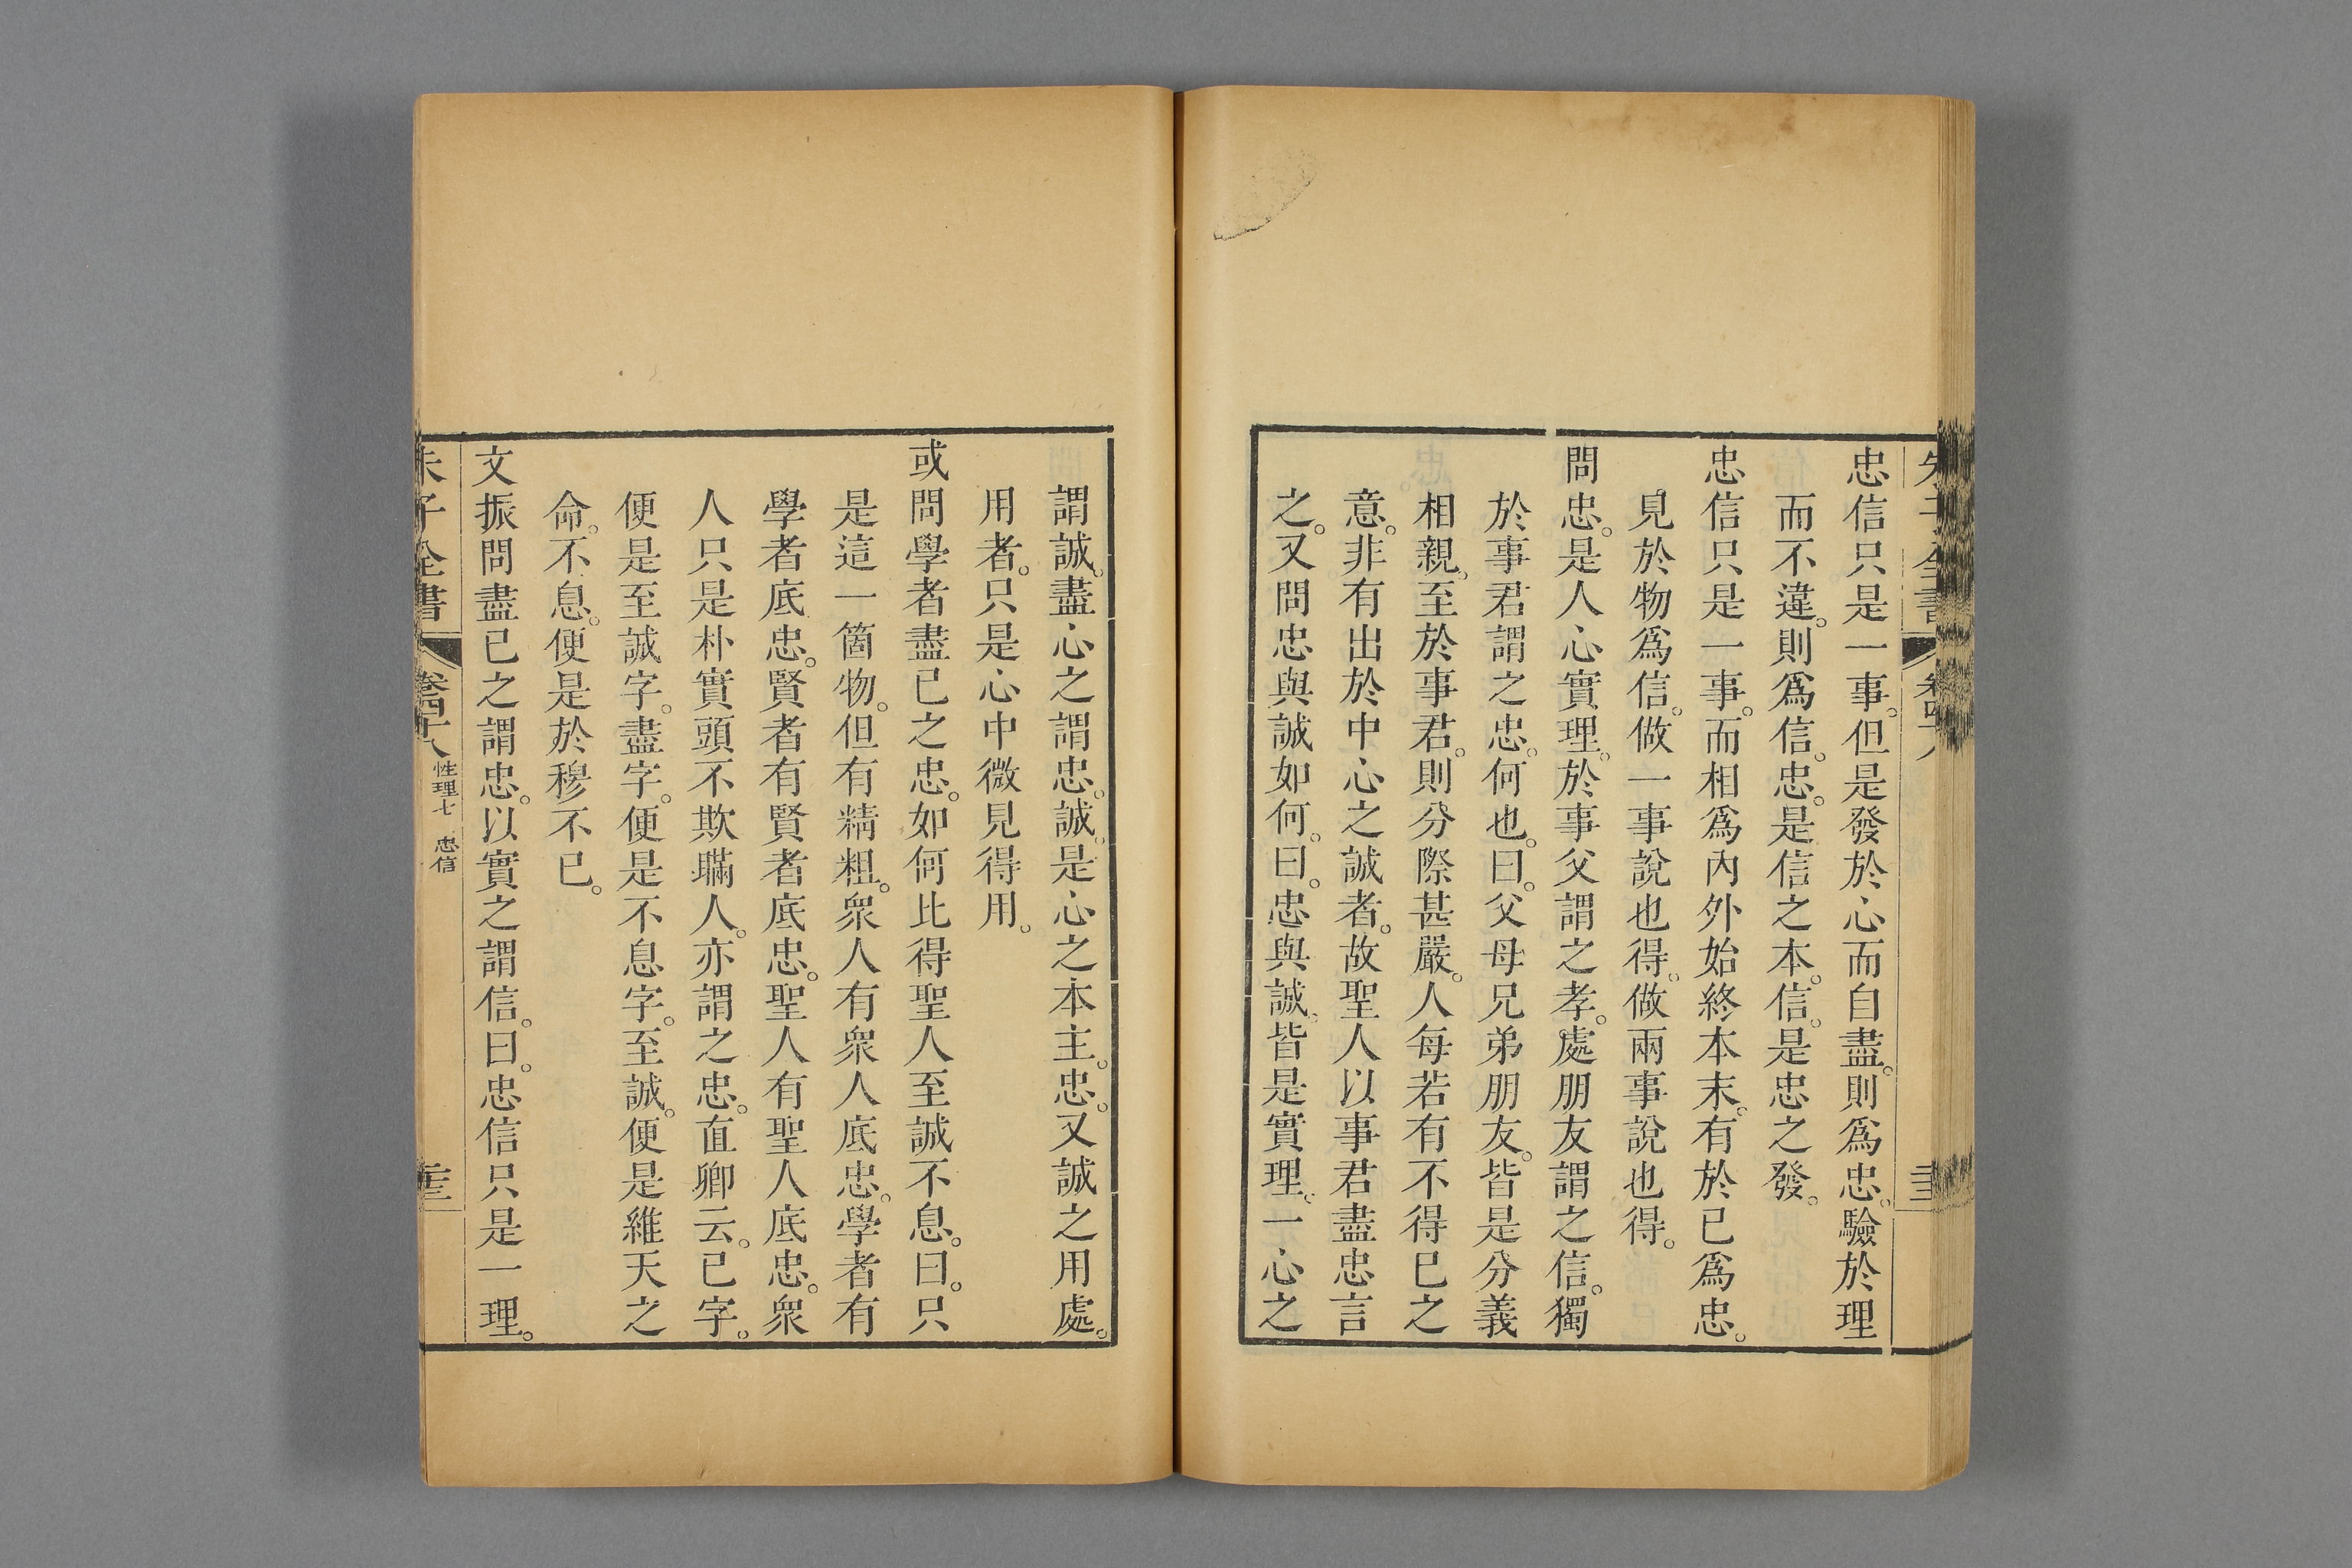 忠信只是一事。但是發於心而自盡。則爲忠。驗於理
而不違。則爲信。忠。是信之本。信。是忠之發。
忠信只是一事。而相爲內外始終本末。有於已爲忠。
見於物爲信。做一事說也得。做兩事說也得。
問忠。是人心實理。於事父謂之孝。處朋友謂之信。獨
於事君謂之忠。何也。曰。父母兄弟朋友。皆是分義
相親。至於事君。則分際甚嚴。人每若有不得已之
意。非有出於中心之誠者。故聖人以事君盡忠言
之。又問忠與誠如何。曰。忠與誠。皆是實理。一心之
謂誠。盡心之謂忠。誠。是心之本主。忠。又誠之用處。
用者。只是心中微見得用。
或問學者盡已之忠。如何比得聖人至誠不息。曰。只
是這一箇物。但有精粗。衆人有衆人底忠。學者有
學者底忠。賢者有賢者底忠。聖人有聖人底忠。衆
人只是朴實頭不欺瞞人。亦謂之忠。直卿云。已字。
便是至誠字。盡字。便是不息字。至誠。便是維天之
命。不息。便是於穆不已。
文振問盡已之謂忠。以實之謂信。曰。忠信只是一理。
朱子全書 卷四十八 性理七 忠信